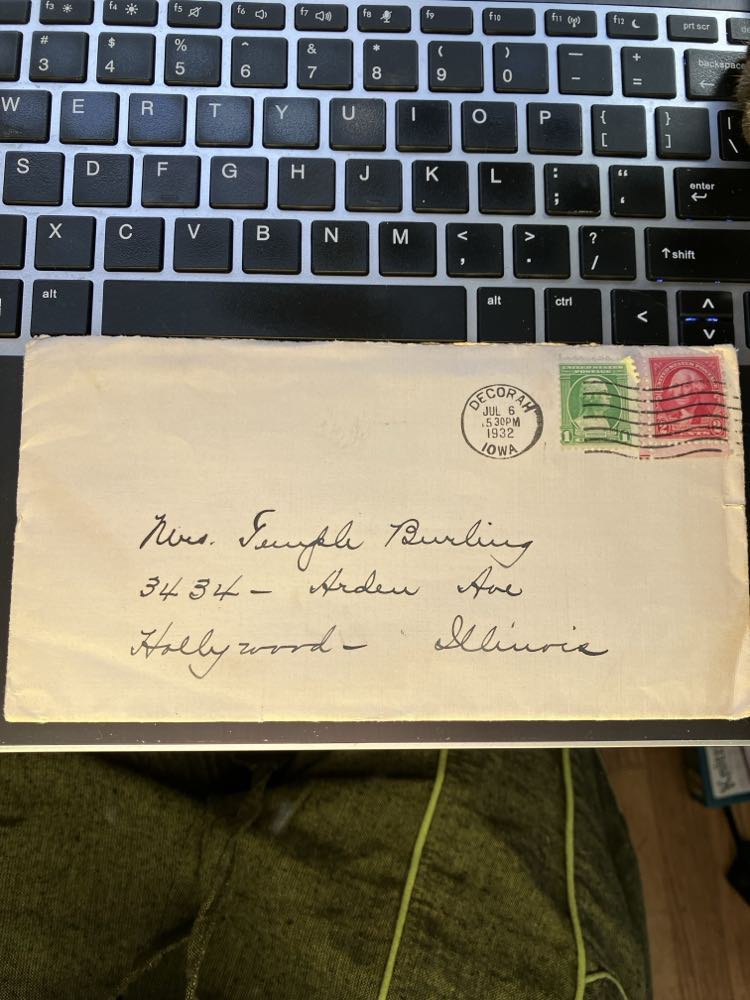 f3 f4 f5 f6 f7 f8 f9 f10 f11 f12 prt scr
# $ % ^ & * ( ) — + backspace
3 4 5 6 7 8 9 0 - =
W E R T Y U I O P { } |
[ ] \
S D F G H J K L : “ enter
; ‘
X C V B N M < > ? shift
, . /
alt alt ctrl
UNITED STATES
POSTAGE
1
2
DECORAH
JUL 6
5 30PM
1932
IOWA
Mrs. Temple Burling
3434 - Arden Ave
Hollywood - Illinois